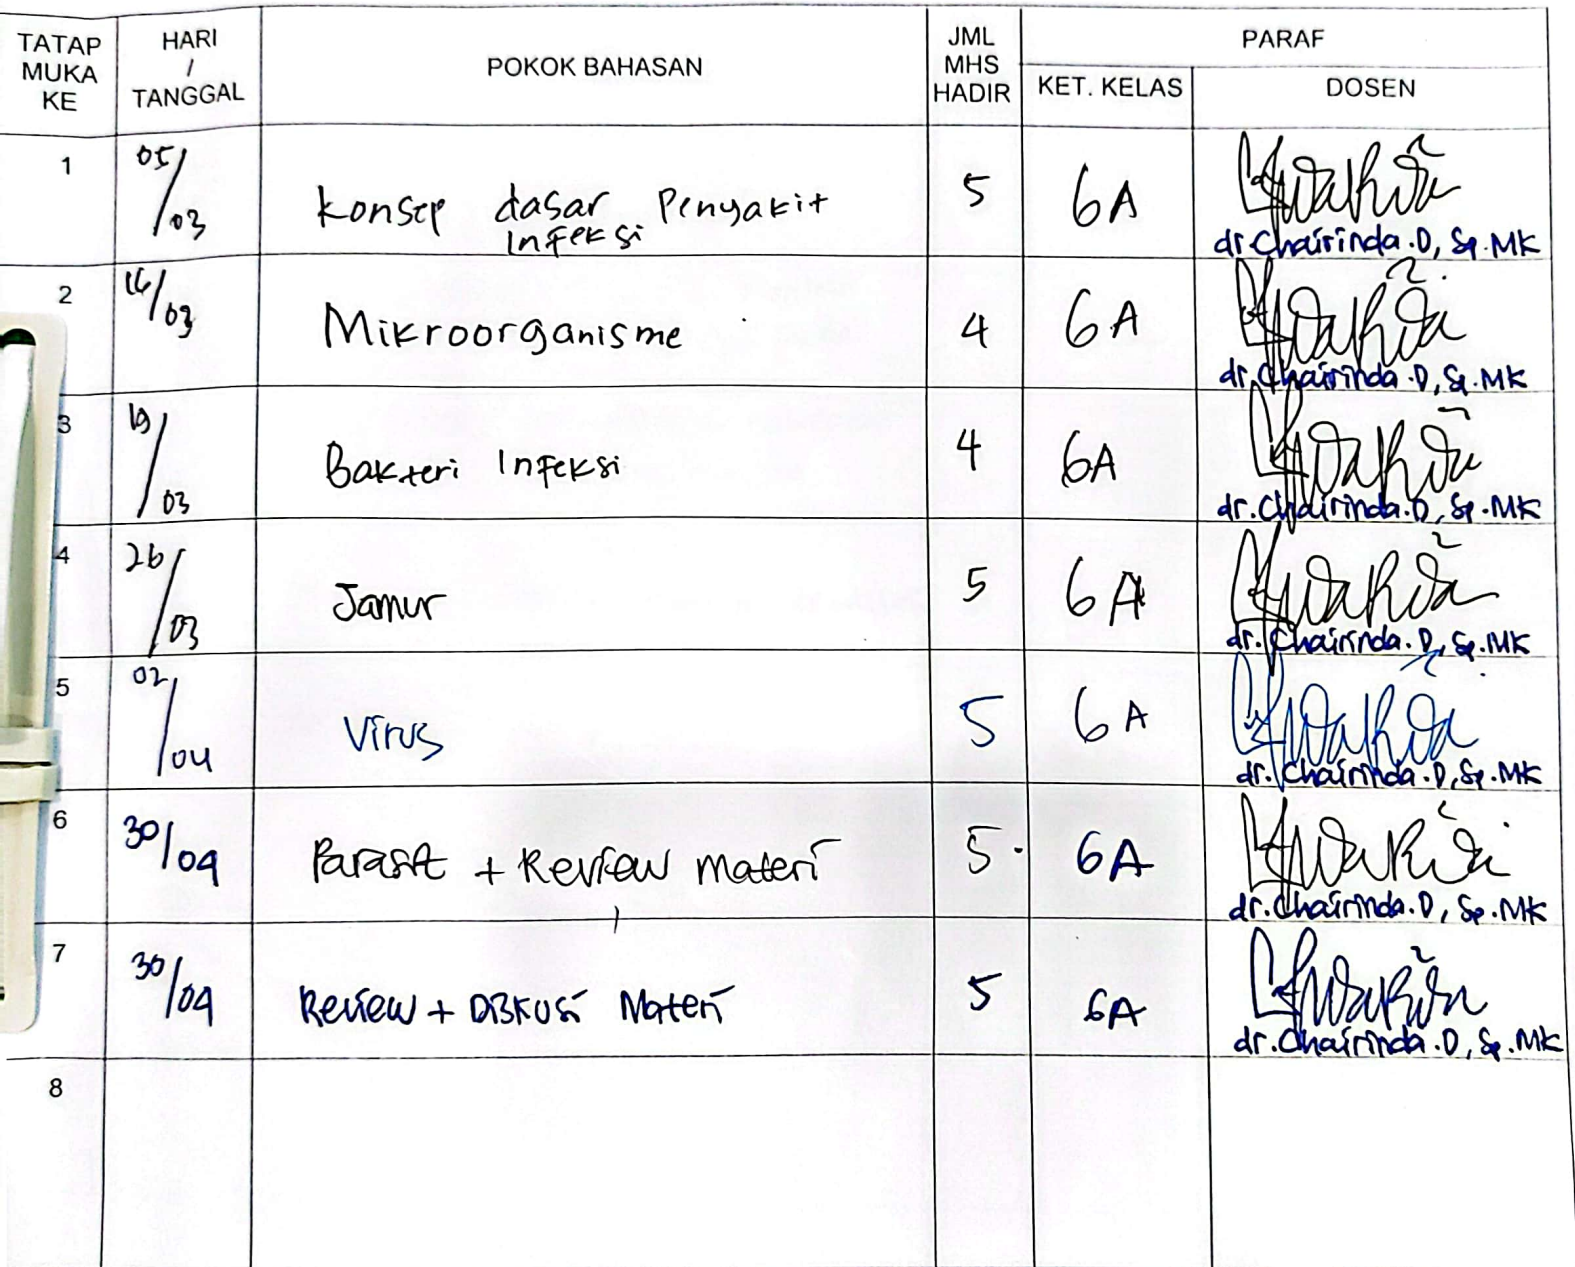 TATAP MUKA KE | HARI / TANGGAL | POKOK BAHASAN | JML MHS HADIR | PARAF
KET. KELAS | DOSEN
1 | 05/03 | Konsep dasar Penyakit Infeksi | 5 | 6A | dr.Chairinda.D, Sp.MK
2 | /03 | Mikroorganisme | 4 | 6A | dr.Chairinda.D, Sp.MK
3 | 19/03 | Bakteri Infeksi | 4 | 6A | dr.Chairinda.D, Sp.MK
4 | 26/03 | Jamur | 5 | 6A | dr.Chairinda.D, Sp.MK
5 | 02/04 | Virus | 5 | 6A | dr.Chairinda.D, Sp.MK
6 | 30/04 | Parasit + Review Materi | 5 | 6A | dr.Chairinda.D, Sp.MK
7 | 30/04 | Review + Diskusi Materi | 5 | 6A | dr.Chairinda.D, Sp.MK
8